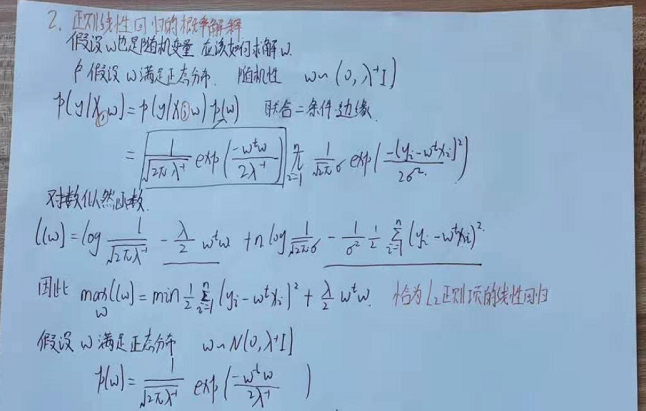 2. 正则线性回归的概率解释
假设w也是随机变量 应该如何求解w.
假设w满足正态分布. 随机性 w~(0, λ⁻¹I)
p(y|X,w)=p(y|X,w)p(w) 联合=条件·边缘.
= 1/√(2πλ⁻¹) exp(-wᵗw/2λ⁻¹) ∏ᵢ₌₁ⁿ 1/(√2π σ) exp(-(yᵢ-wᵗxᵢ)²/2σ²)
对数似然函数.
l(w)=log 1/√(2πλ⁻¹) - λ/2 wᵗw + n log 1/(√2π σ) - 1/σ² 1/2 ∑ᵢ₌₁ⁿ (yᵢ-wᵗxᵢ)².
因此 max_w l(w)=min 1/2 ∑ᵢ₌₁ⁿ (yᵢ-wᵗxᵢ)² + λ/2 wᵗw. 恰为L₂正则项的线性回归
假设w满足正态分布 w~N(0, λ⁻¹I)
p(w)= 1/√(2πλ⁻¹) exp(-wᵗw/2λ⁻¹ )